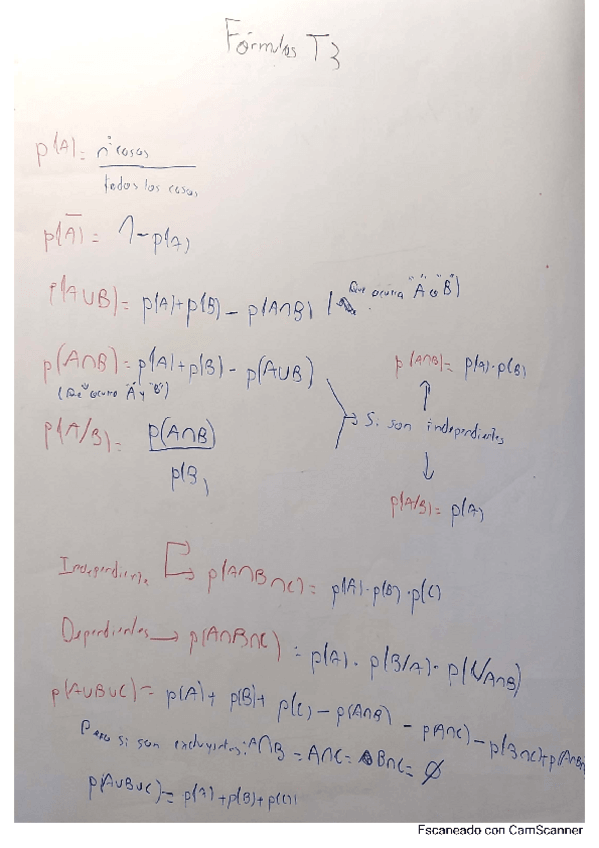 Fórmulas T3
p(A) = nº casos
todos los casos
p(A̅) = 1 - p(A)
p(A∪B) = p(A) + p(B) - p(A∩B) (Que ocurra "A" o "B")
p(A∩B) = p(A) + p(B) - p(A∪B)
(Que ocurra "A" y "B")
p(A∩B) = p(A) · p(B)
p(A/B) = p(A∩B)
p(B)
Si son independientes
p(A/B) = p(A)
Independiente p(A∩B∩C) = p(A) · p(B) · p(C)
Dependientes → p(A∩B∩C) = p(A) · p(B/A) · p(C/A∩B)
p(A∪B∪C) = p(A) + p(B) + p(C) - p(A∩B) - p(A∩C) - p(B∩C) + p(A∩B∩
Pero si son excluyentes: A∩B = A∩C = B∩C = ∅
p(A∪B∪C) = p(A) + p(B) + p(C)
Escaneado con CamScanner